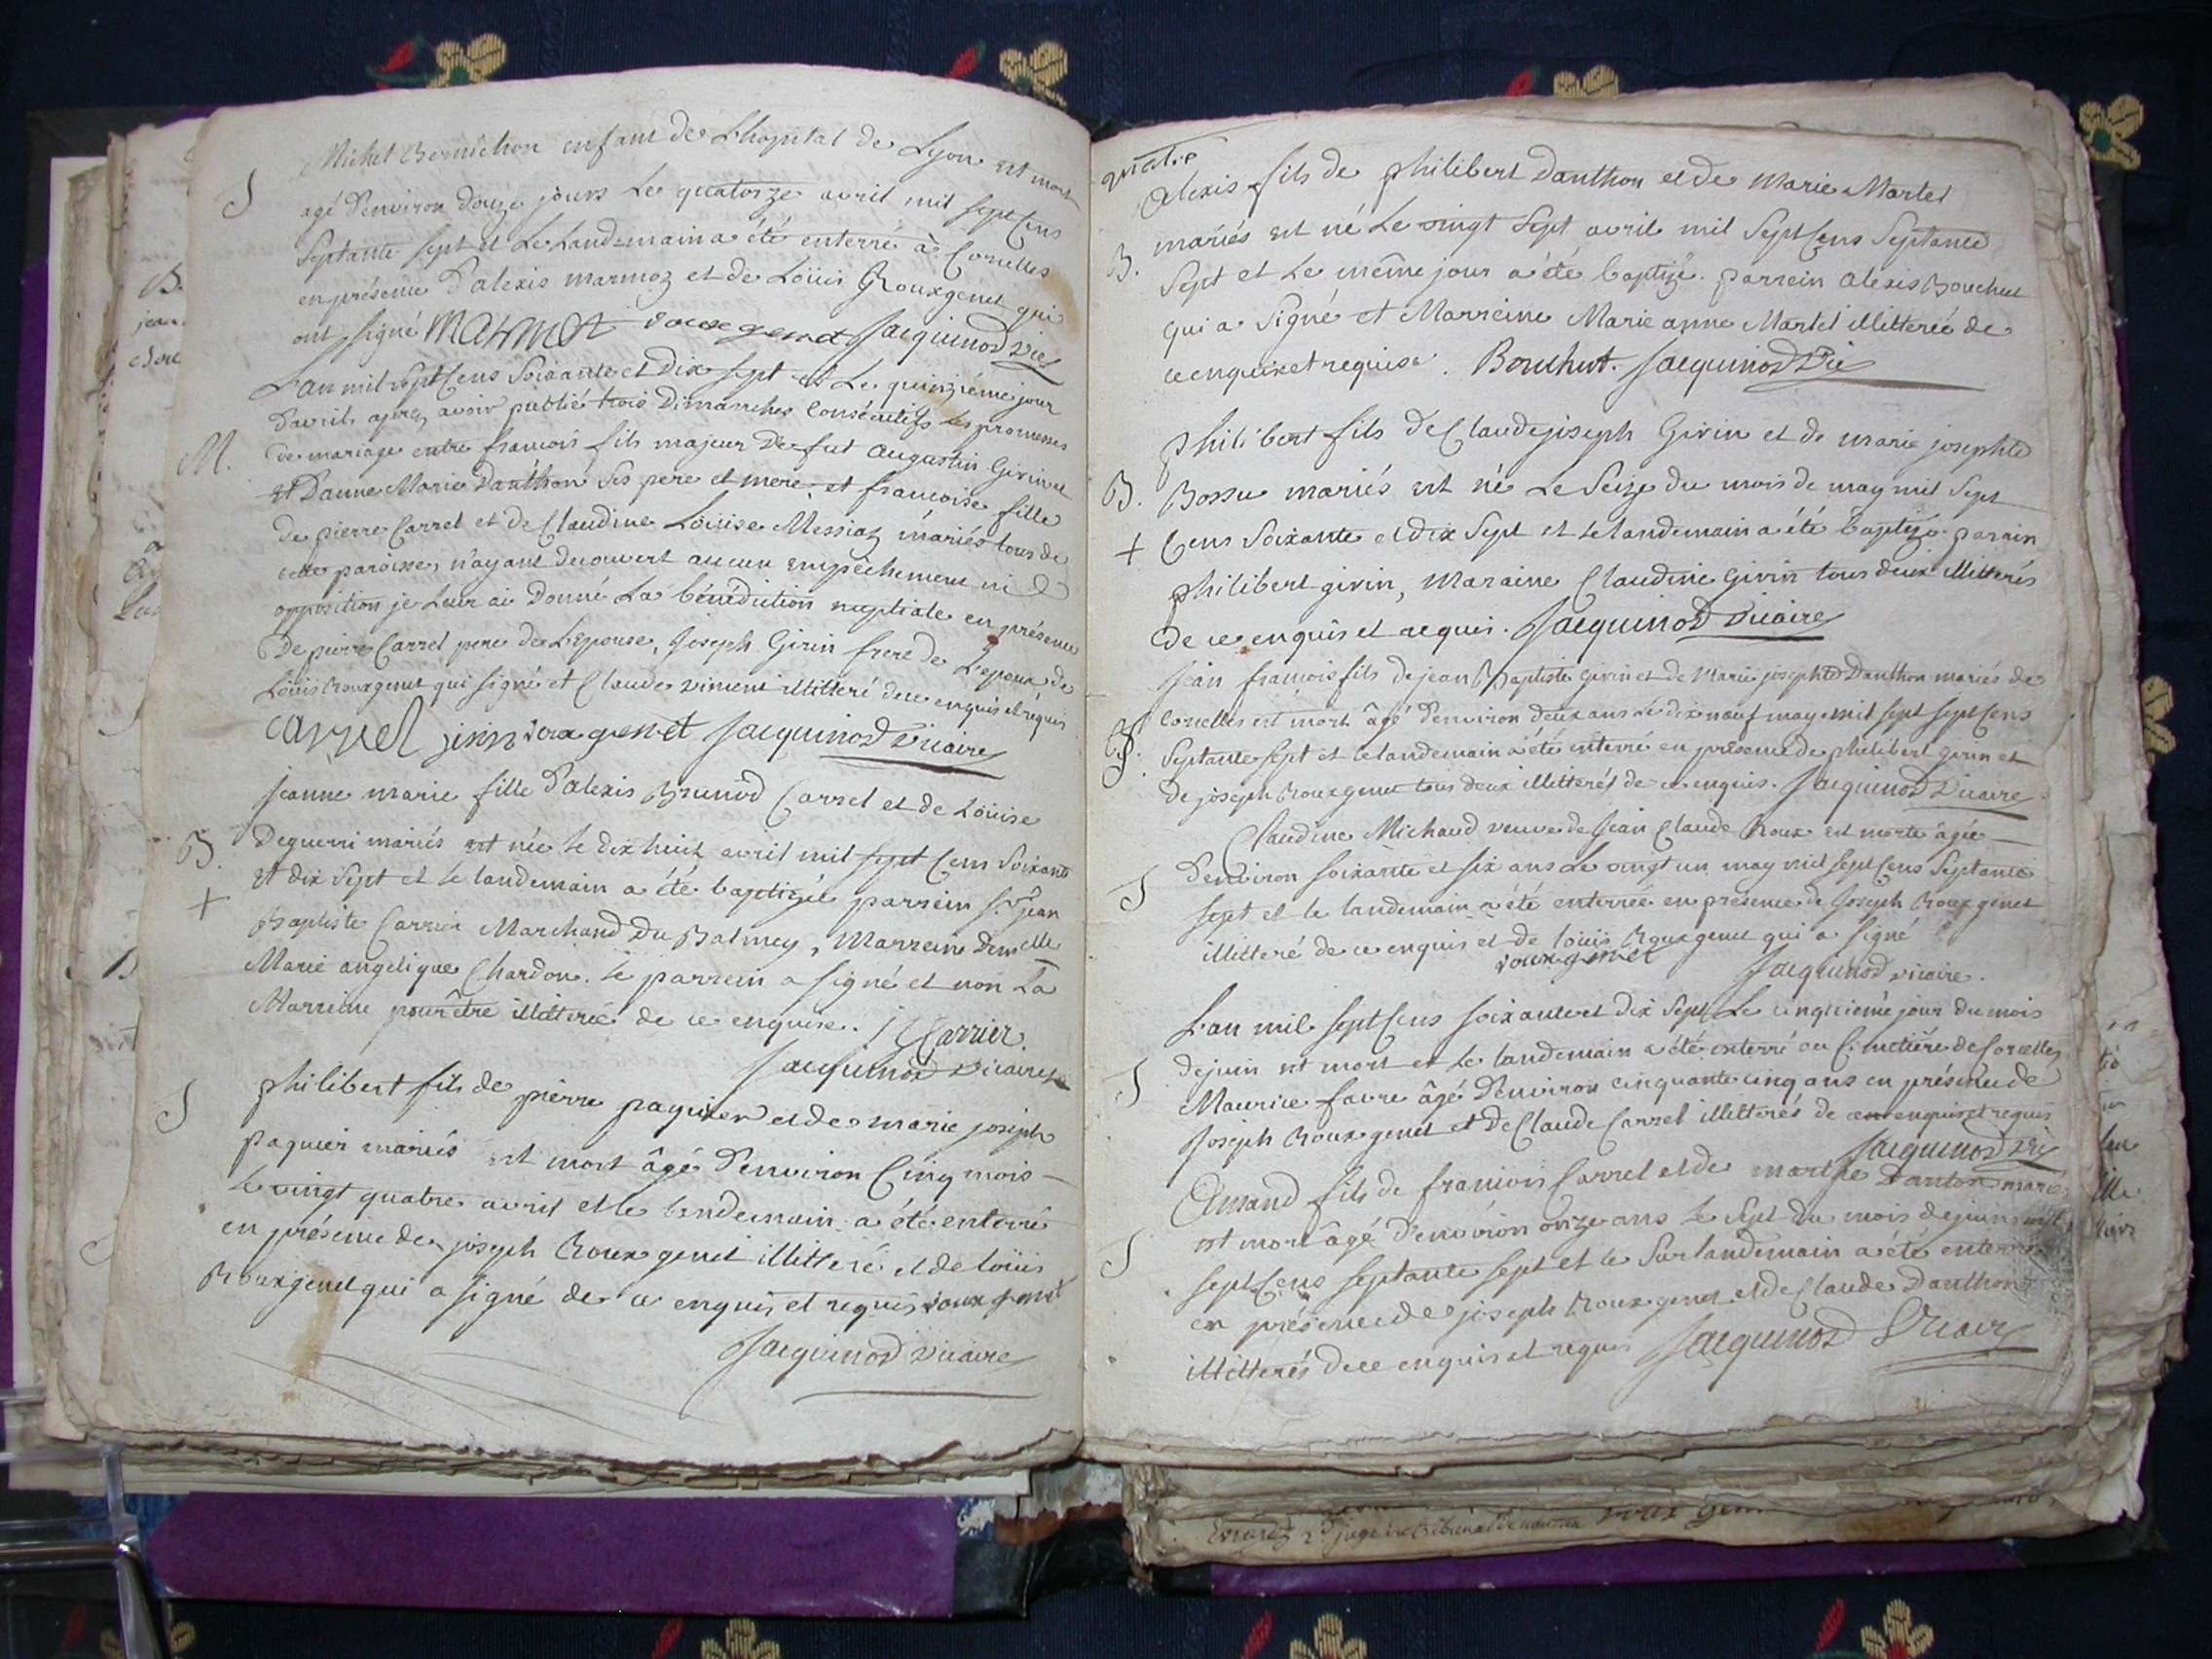 Michel Bernichon enfant de L'hopital de Lyon est mort
S
agé d'environ douze jours Le quatorze avril mil sept Cens
Septante sept et Le Landemain a été enterré à Corcelles
en présence d'alexis marmoz et de Loüis Rouxgenet qui
ont signé Marmoz roux genet Jacquinod vic
L'an mil sept Cens Soixante et Dix sept et Le quinziéme jour
d'avril aprez avoir publié trois Dimanches Consécutifs Les promesses
M.
de mariage entre francois fils majeur De fut Augustin Girin et
et Danne Marie Danthon Ses pere et mere, et francoise fille
de pierre Carrel et de Claudine Loüise Messiaz mariés tous de
cette paroisse, n'ayant decouvert aucun empêchement ni
opposition je Leur ai Donné La bénédiction nuptiale en présence
De pierre Carrel pere de L'epouse, Joseph Girin frere de L'epoux de
Loüis Rouxgenet qui signé et Claude viment illitteré de ce enquis et requis
Carrel jirin roux genet Jacquinod Vicaire
Jeanne marie fille d'alexis Brunod Carrel et de Loüise
B.
Deguerri mariés est née le dix huit avril mil sept Cens Soixante
+
et dix Sept et le landemain a été baptizée parrein Sr. jean
Baptiste Carrier Marchand Du Balmey, Marreine Demelle
Marie angelique Chardon. Le parrein a signé et non La
Marreine pour être illitterée de ce enquise. J Carrier.
Jacquinod vicaire
S
philibert fils de pierre paquier et de marie joseph
paquier mariés est mort âgé d'environ Cinq mois
Le vingt quatre avril et le landemain a été enterré
en présence de joseph Roux genet illitteré et de loüis
Rouxgenet qui a signé de ce enquis et requis roux genet
Jacquinod vicaire
quatre
Alexis fils de philibert Danthon et de Marie Martel
B.
mariés est né Le vingt Sept avril mil Sept Cens Septante
Sept et Le même jour a été baptizé. parrein alexis Bouchut
qui a Signé et Marreine Marie anne Martel illitterée de
ce enquise et requise. Bouchut. Jacquinod Vic
philibert fils de Claude joseph Girin et de marie josephte
B.
Bossu mariés est né Le Seize du mois de may mil Sept
+
Cens Soixante et dix Sept et le landemain a été baptizé parain
philibert girin, Maraine Claudine Girin tous deux illitterés
de ce enquis et requis. Jacquinod Vicaire
Jean francois fils de jean Baptiste girin et de Marie josephte Danthon mariés de
Corcelles est mort âgé d'environ deux ans Le dix neuf may mil sept sept Cens
S.
Septante Sept et le landemain a été enterré en présence de philibert girin et
de joseph Roux genet tous deux illitterés de ce enquis. Jacquinod Vicaire
Claudine Michaud veuve de Jean Claude Roux est morte âgée
S
d'environ soixante et six ans Le vingt un may mil sept Cens Septante
sept et le landemain a été enterrée en présence de Joseph Roux genet
illitteré de ce enquis et de loüis Rouxgenet qui a signé
roux genet Jacquinod vicaire.
L'an mil sept Cens soixante et Dix Sept Le cinquieme jour du mois
S
de juin est mort et Le landemain a été enterré au Cimetiere de Corcelles
Maurice favre âgé d'environ cinquante cinq ans en présence de
Joseph Roux genet et de Claude Carrel illitterés de ce enquis et requis
Jacquinod Vic
Amand fils de francois Carrel et de marthe Danton mariés
S
est mort âgé d'environ onze ans Le Sept du mois de juin mil
sept Cens septante sept et le Surlandemain a été enterré
en présence de joseph Roux genet et de Claude Danthon
illitterés de ce enquis et requis Jacquinod Vicaire